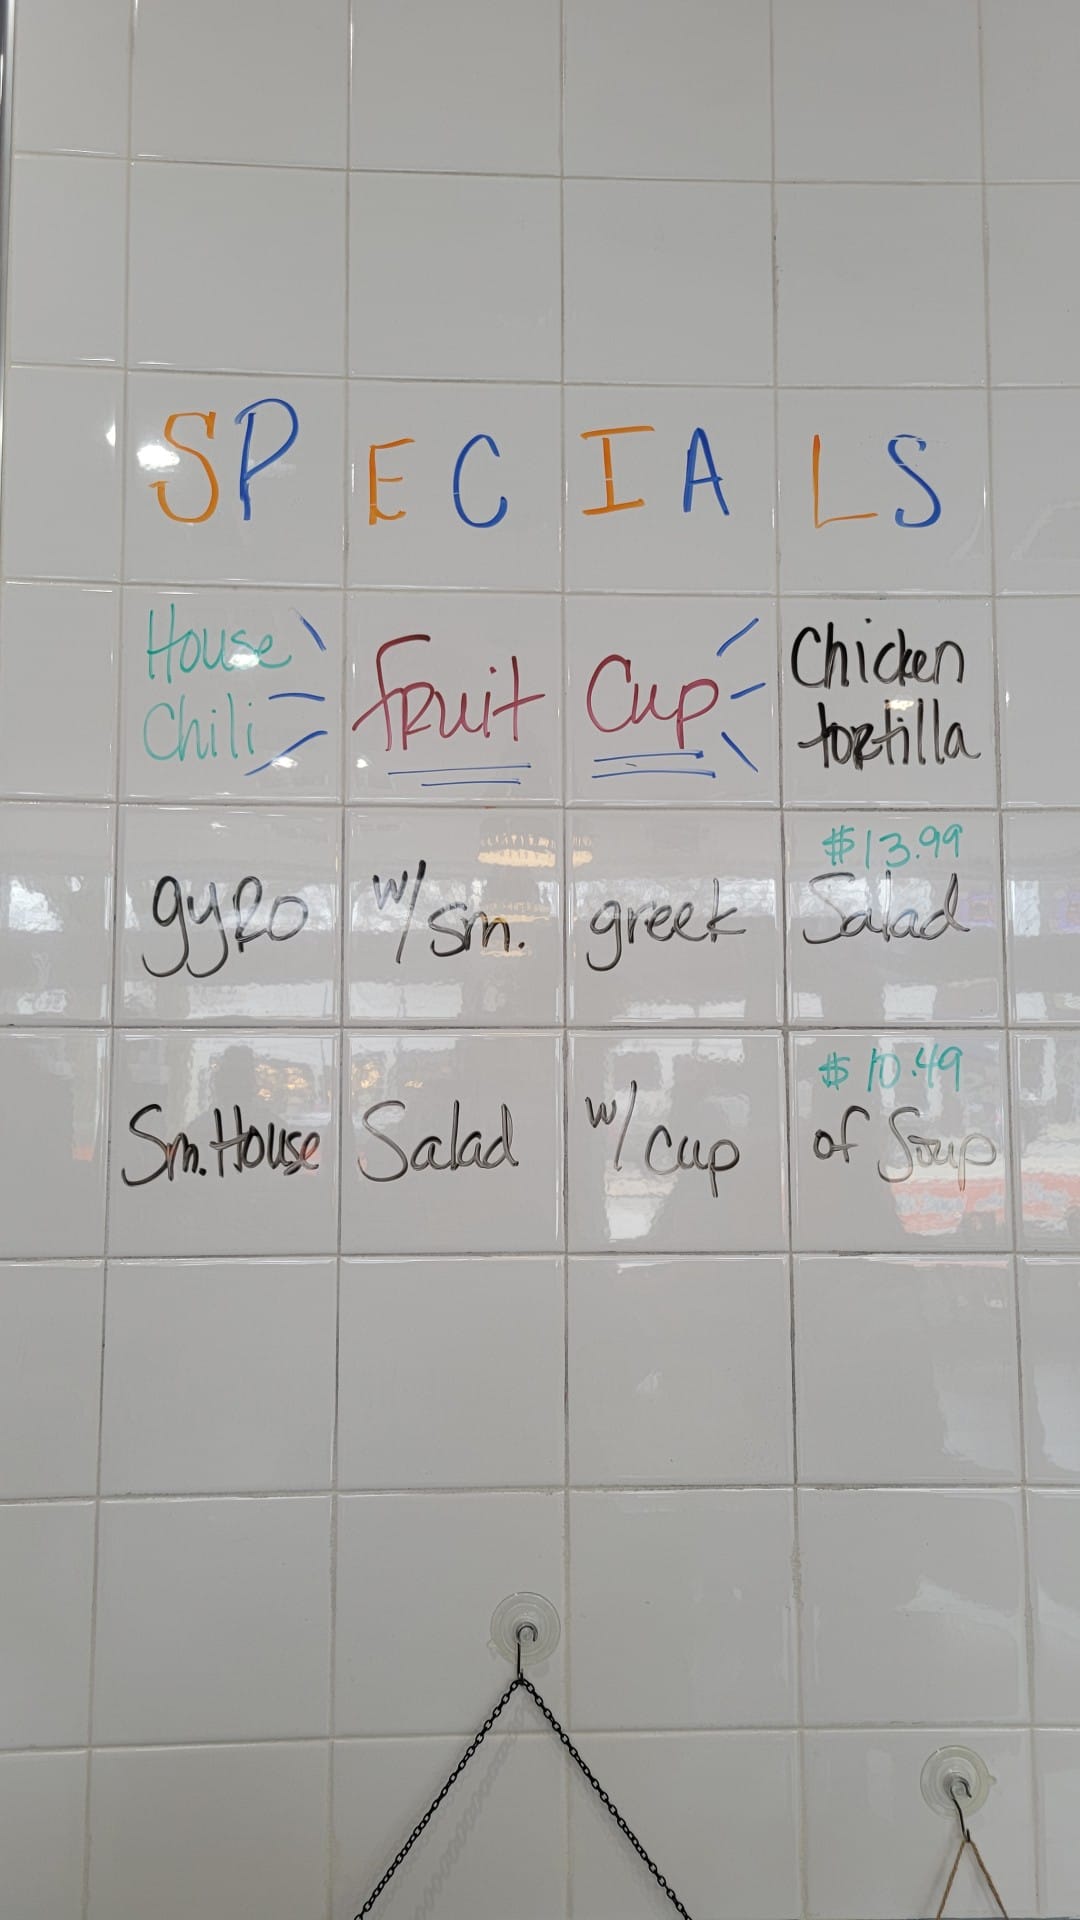 SPECIALS
House Chili
Fruit Cup
Chicken tortilla
$13.99
gyro w/ sm. greek Salad
$10.49
Sm. House Salad w/ cup of Soup